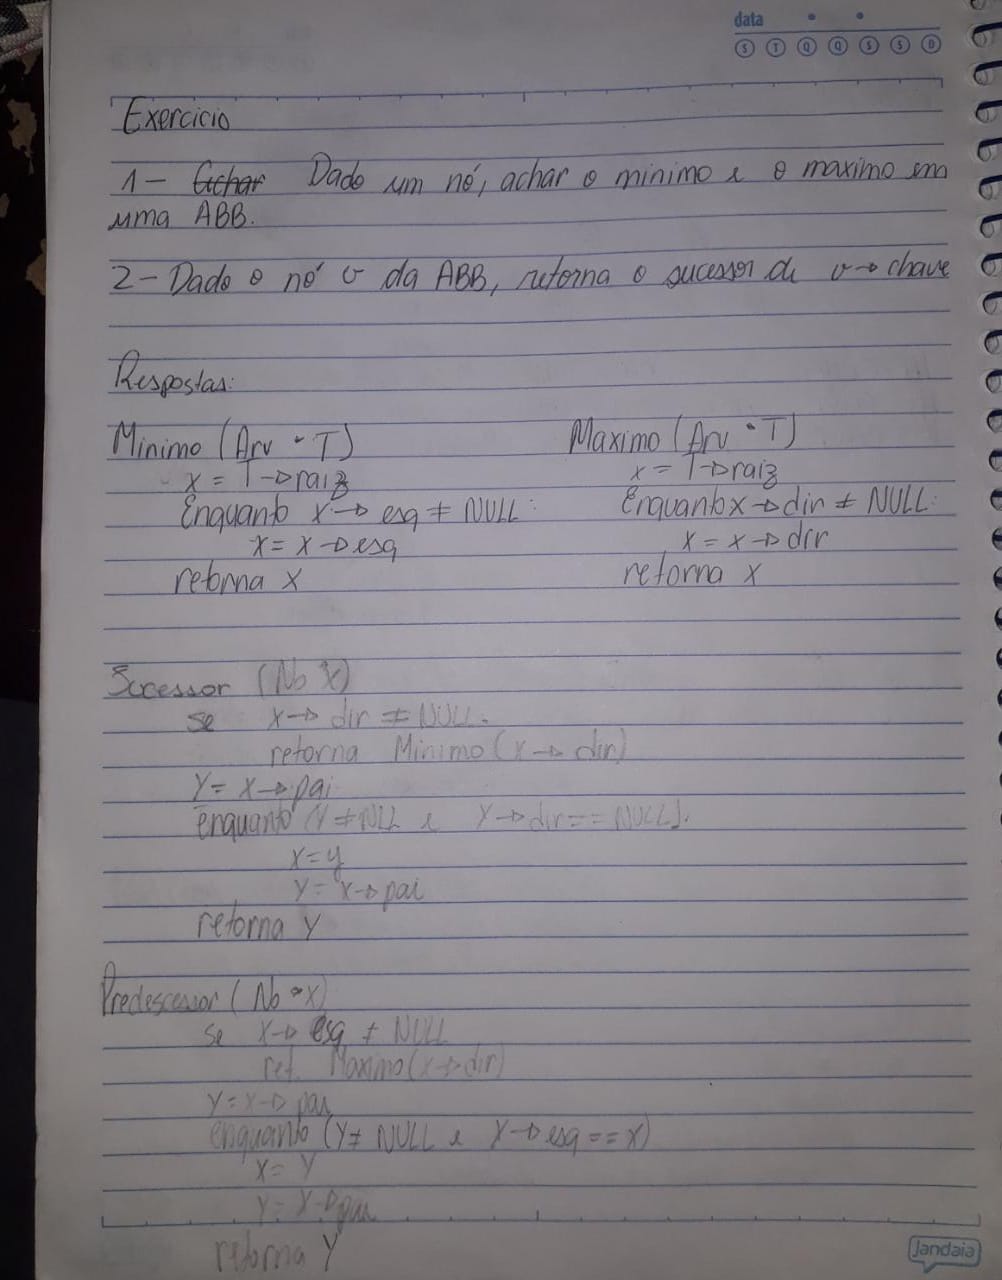 data
S T Q Q S S D
Exercicio
1 - Achar Dado um nó, achar o minimo e o maximo em
uma ABB.
2 - Dado o nó v da ABB, retorna o sucessor de v → chave
Respostas:
Minimo (Arv * T)
x = T → raiz
Enquanto x → esq ≠ NULL:
x = x → esq
retorna x
Maximo (Arv * T)
x = T → raiz
Enquanto x → dir ≠ NULL:
x = x → dir
retorna x
Sucessor (No * x)
se x → dir ≠ NULL.
retorna Minimo (x → dir)
Y = X → pai
enquanto (Y ≠ NLL e Y → dir == NULL).
X = y
Y = X → pai
retorna Y
Predescessor (No * x)
se x → esq ≠ NULL
ret. Maximo (x → dir)
Y = X → pai
enquanto (Y ≠ NULL e X → esq == x)
X = Y
Y = X → pai
retorna Y
Jandaia